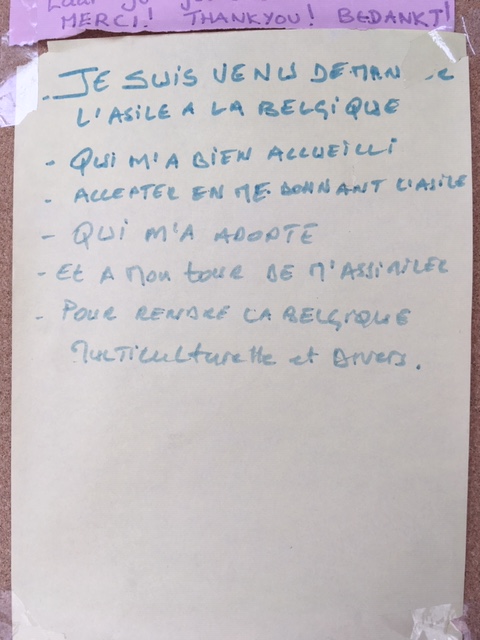 MERCI! THANKYOU! BEDANKT!
- JE SUIS VENU DEMAN
L'ASILE A LA BELGIQUE
- QUI M'A BIEN ACCUEILLI
- ACCEPTER EN ME DONNANT L'ASILE
- QUI M'A ADOPTE
- ET A MON TOUR DE M'ASSIMILER
- POUR RENDRE LA BELGIQUE
Multiculturelle et Divers.